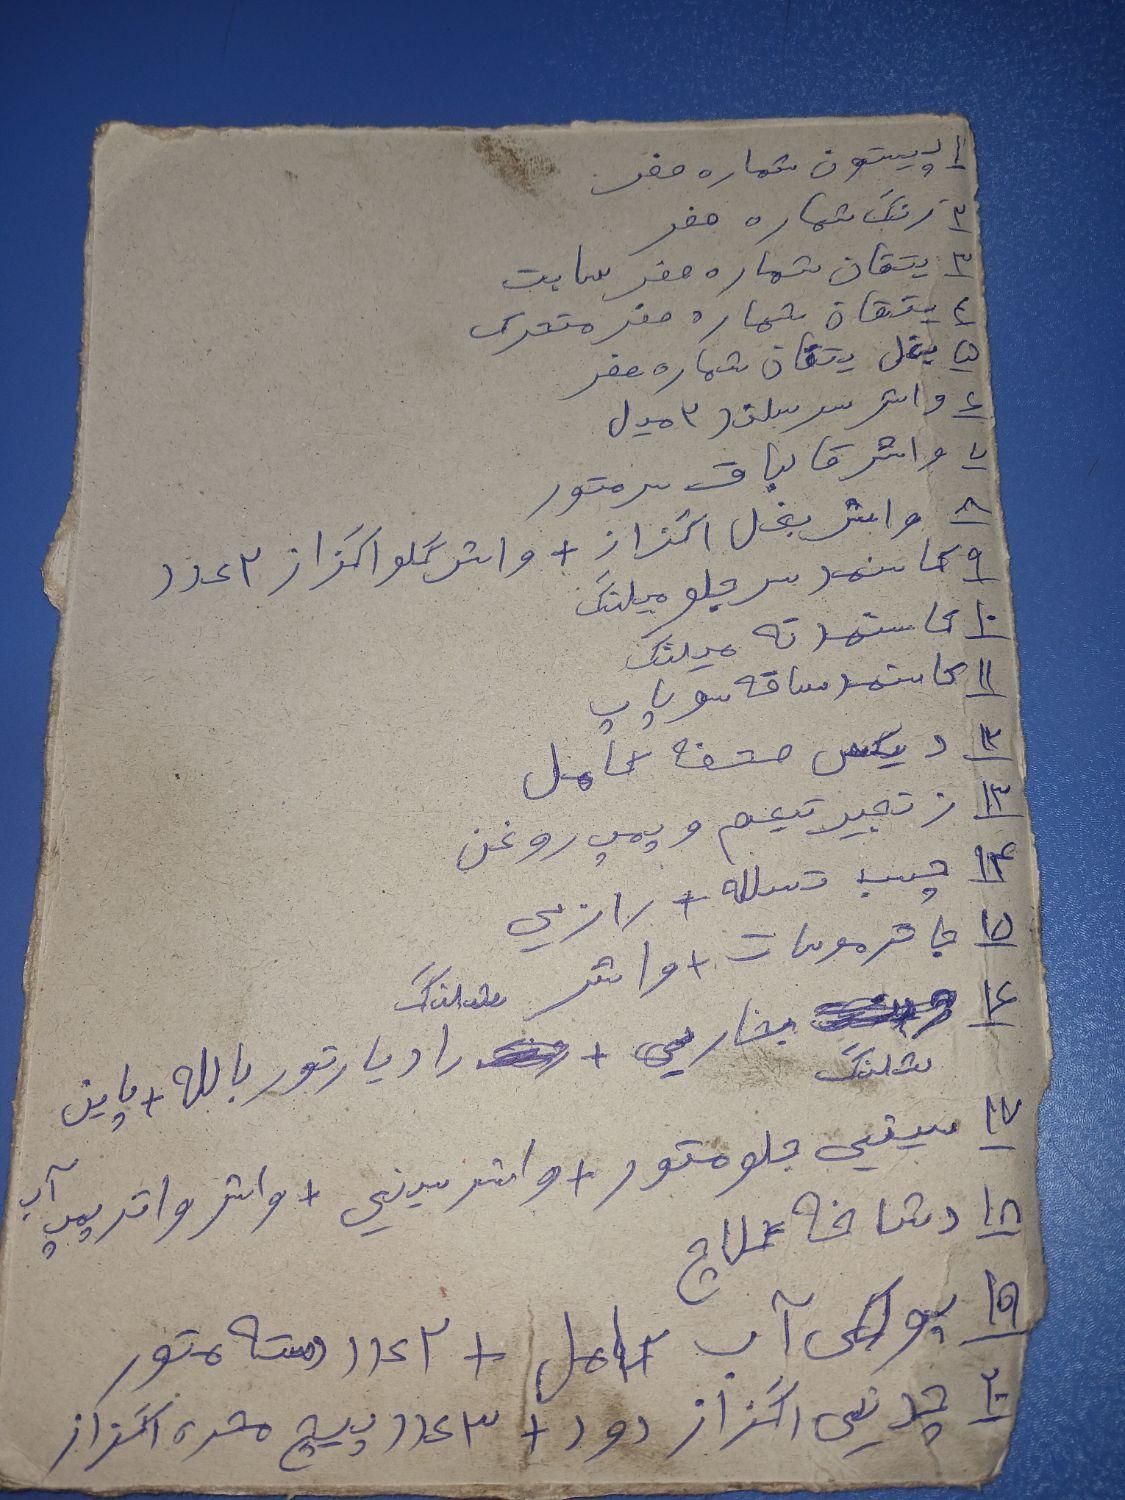 ۱ پیستون شماره صفر
۲ رنگ شماره صفر
۳ یتقان شماره صفر سابت
۴ یتقان شماره صفر متحرک
۵ بغل یتقان شماره صفر
۶ واشر سر سلندر ۳ میل
۷ واشر قالپاق سر متور
۸ واشر بغل اگزاز + واشر گلو اگزاز ۲ عدد
۹ کاسنمد سر جلو میلنگ
۱۰ کاسنمد ته میلنگ
۱۱ کاسنمد ساقه سوپاپ
۱۲ دیکس صفحه کامل
۱۳ زنجیر تیم و پمپ روغن
۱۴ چسب + رازیی
۱۵ جا ترموسات + واشر
۱۶ شلنگ بخاریی + شلنگ رادیارتور بالله + پاین
۱۷ سینیی جلو متور + واشر سینیی + واشر واتر پمپ آب
۱۸ دشاخه کلاچ
۱۹ پولکی آب کامل + ۲ عدد دسته متور
۲۰ اگزاز دود + ۳ عدد پیچ مهره اگزاز